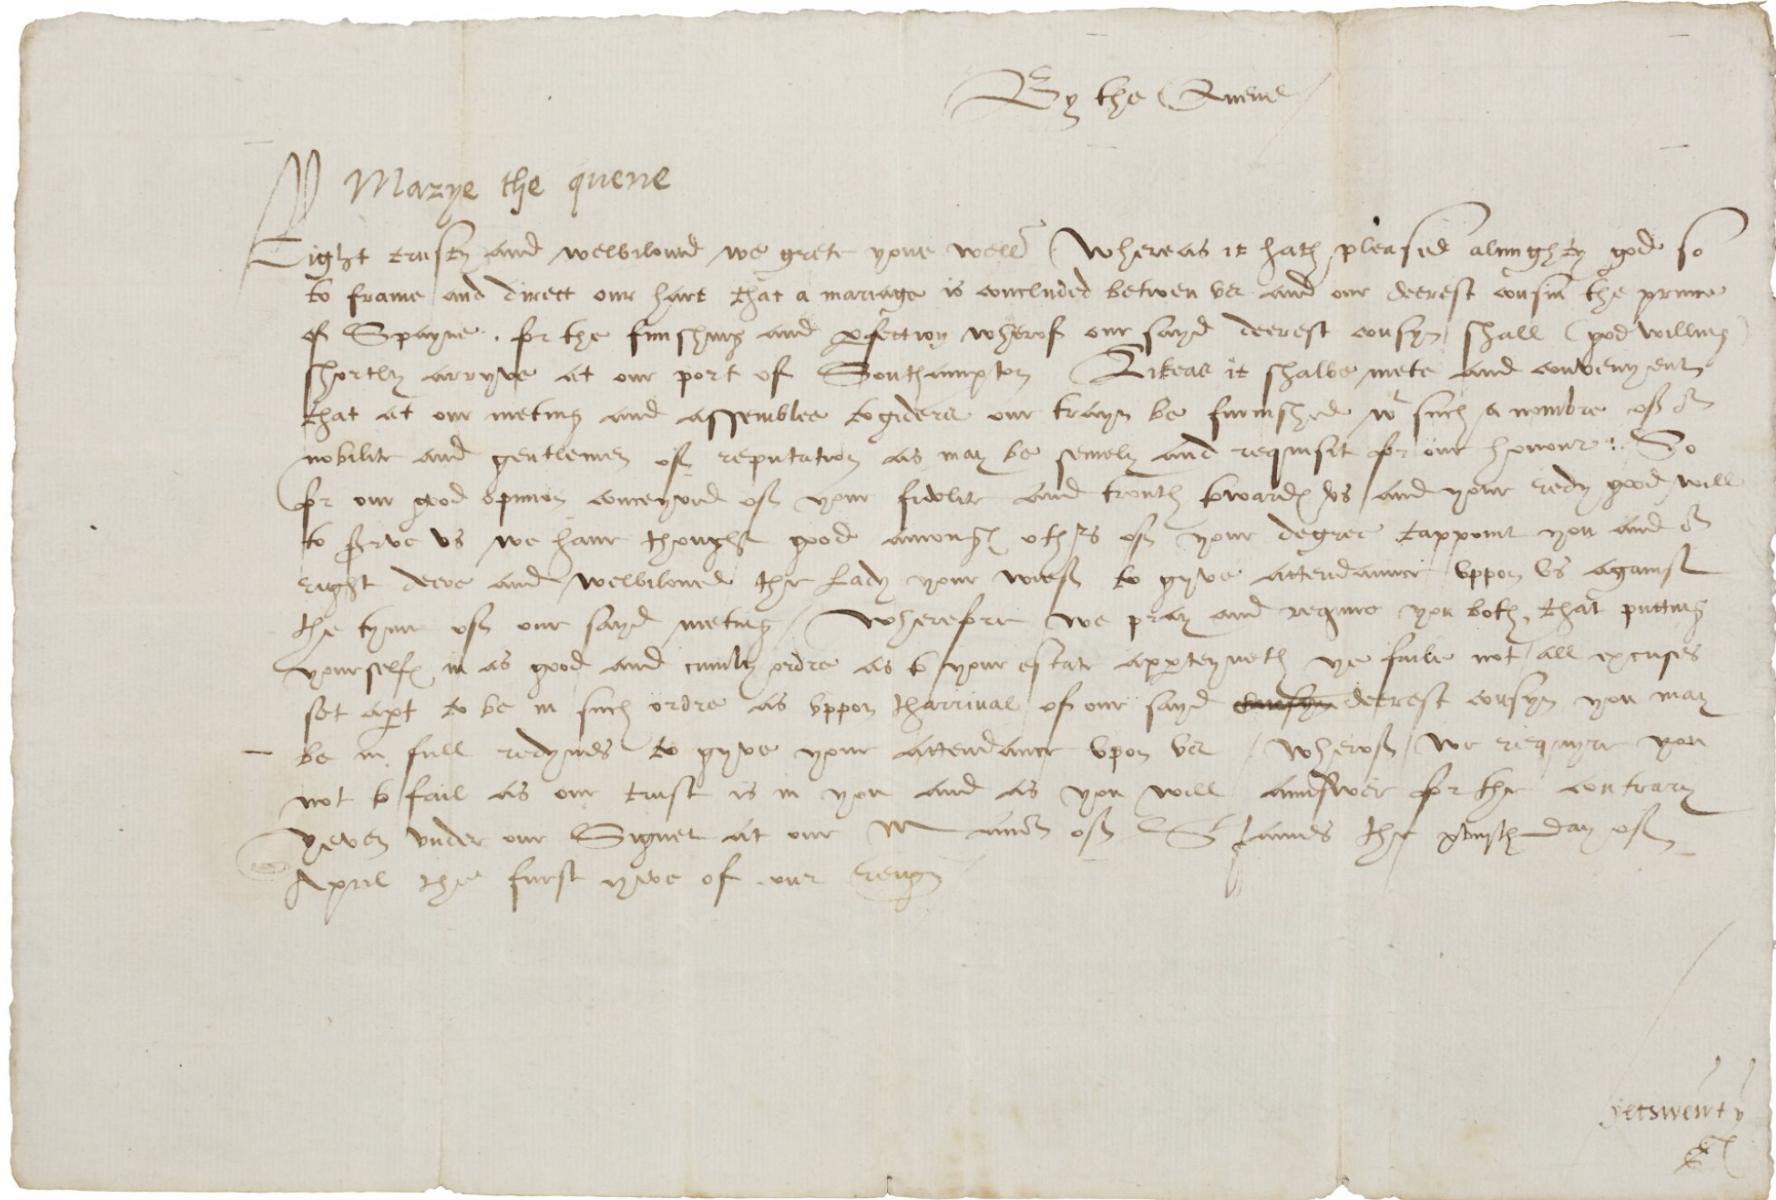 By the Quene
Marye the quene
Right trusty and welbiloued we grete youe well Whereas it hath pleased almighty god so
to frame and direct our hart that a mariage is concluded betwen us and our deerest cousin the prince
of Spayne. for the finishing and perfection wherof our sayd deerest cousyn shall (god willing)
shortly arryve at our port of Southampton Likeas it shalbe mete and convenyent
that at our meting and assemblee togiders our trayn be furnished wt such a nombre of our
nobilite and gentlemen of reputation as may be semely and requisit for our honour: So
for our good opinion conceyved of your fidelite and trouth towards us and your redy good will
to serve us we haue thought good amongs others of your degree tappoint you and our
right dere and welbiloued the Lady your wief to gyve attendaunce uppon us against
the tyme of our sayd meting / Wherefore we pray and require you both, that putting
yourselfs in as good and cumly ordre as to your estate apperteyneth ye faile not all excuses
set apert to be in such ordre as uppon tharrival of our sayd cousyn deerest cousyn you may
be in full redynes to gyve your attendance upon us / Wherof we requyre you
not to fail as our trust is in you and as you will aunswer for the contrary
Yeven under our Signet at our Manor of St James the day of
April the furst yere of our reign